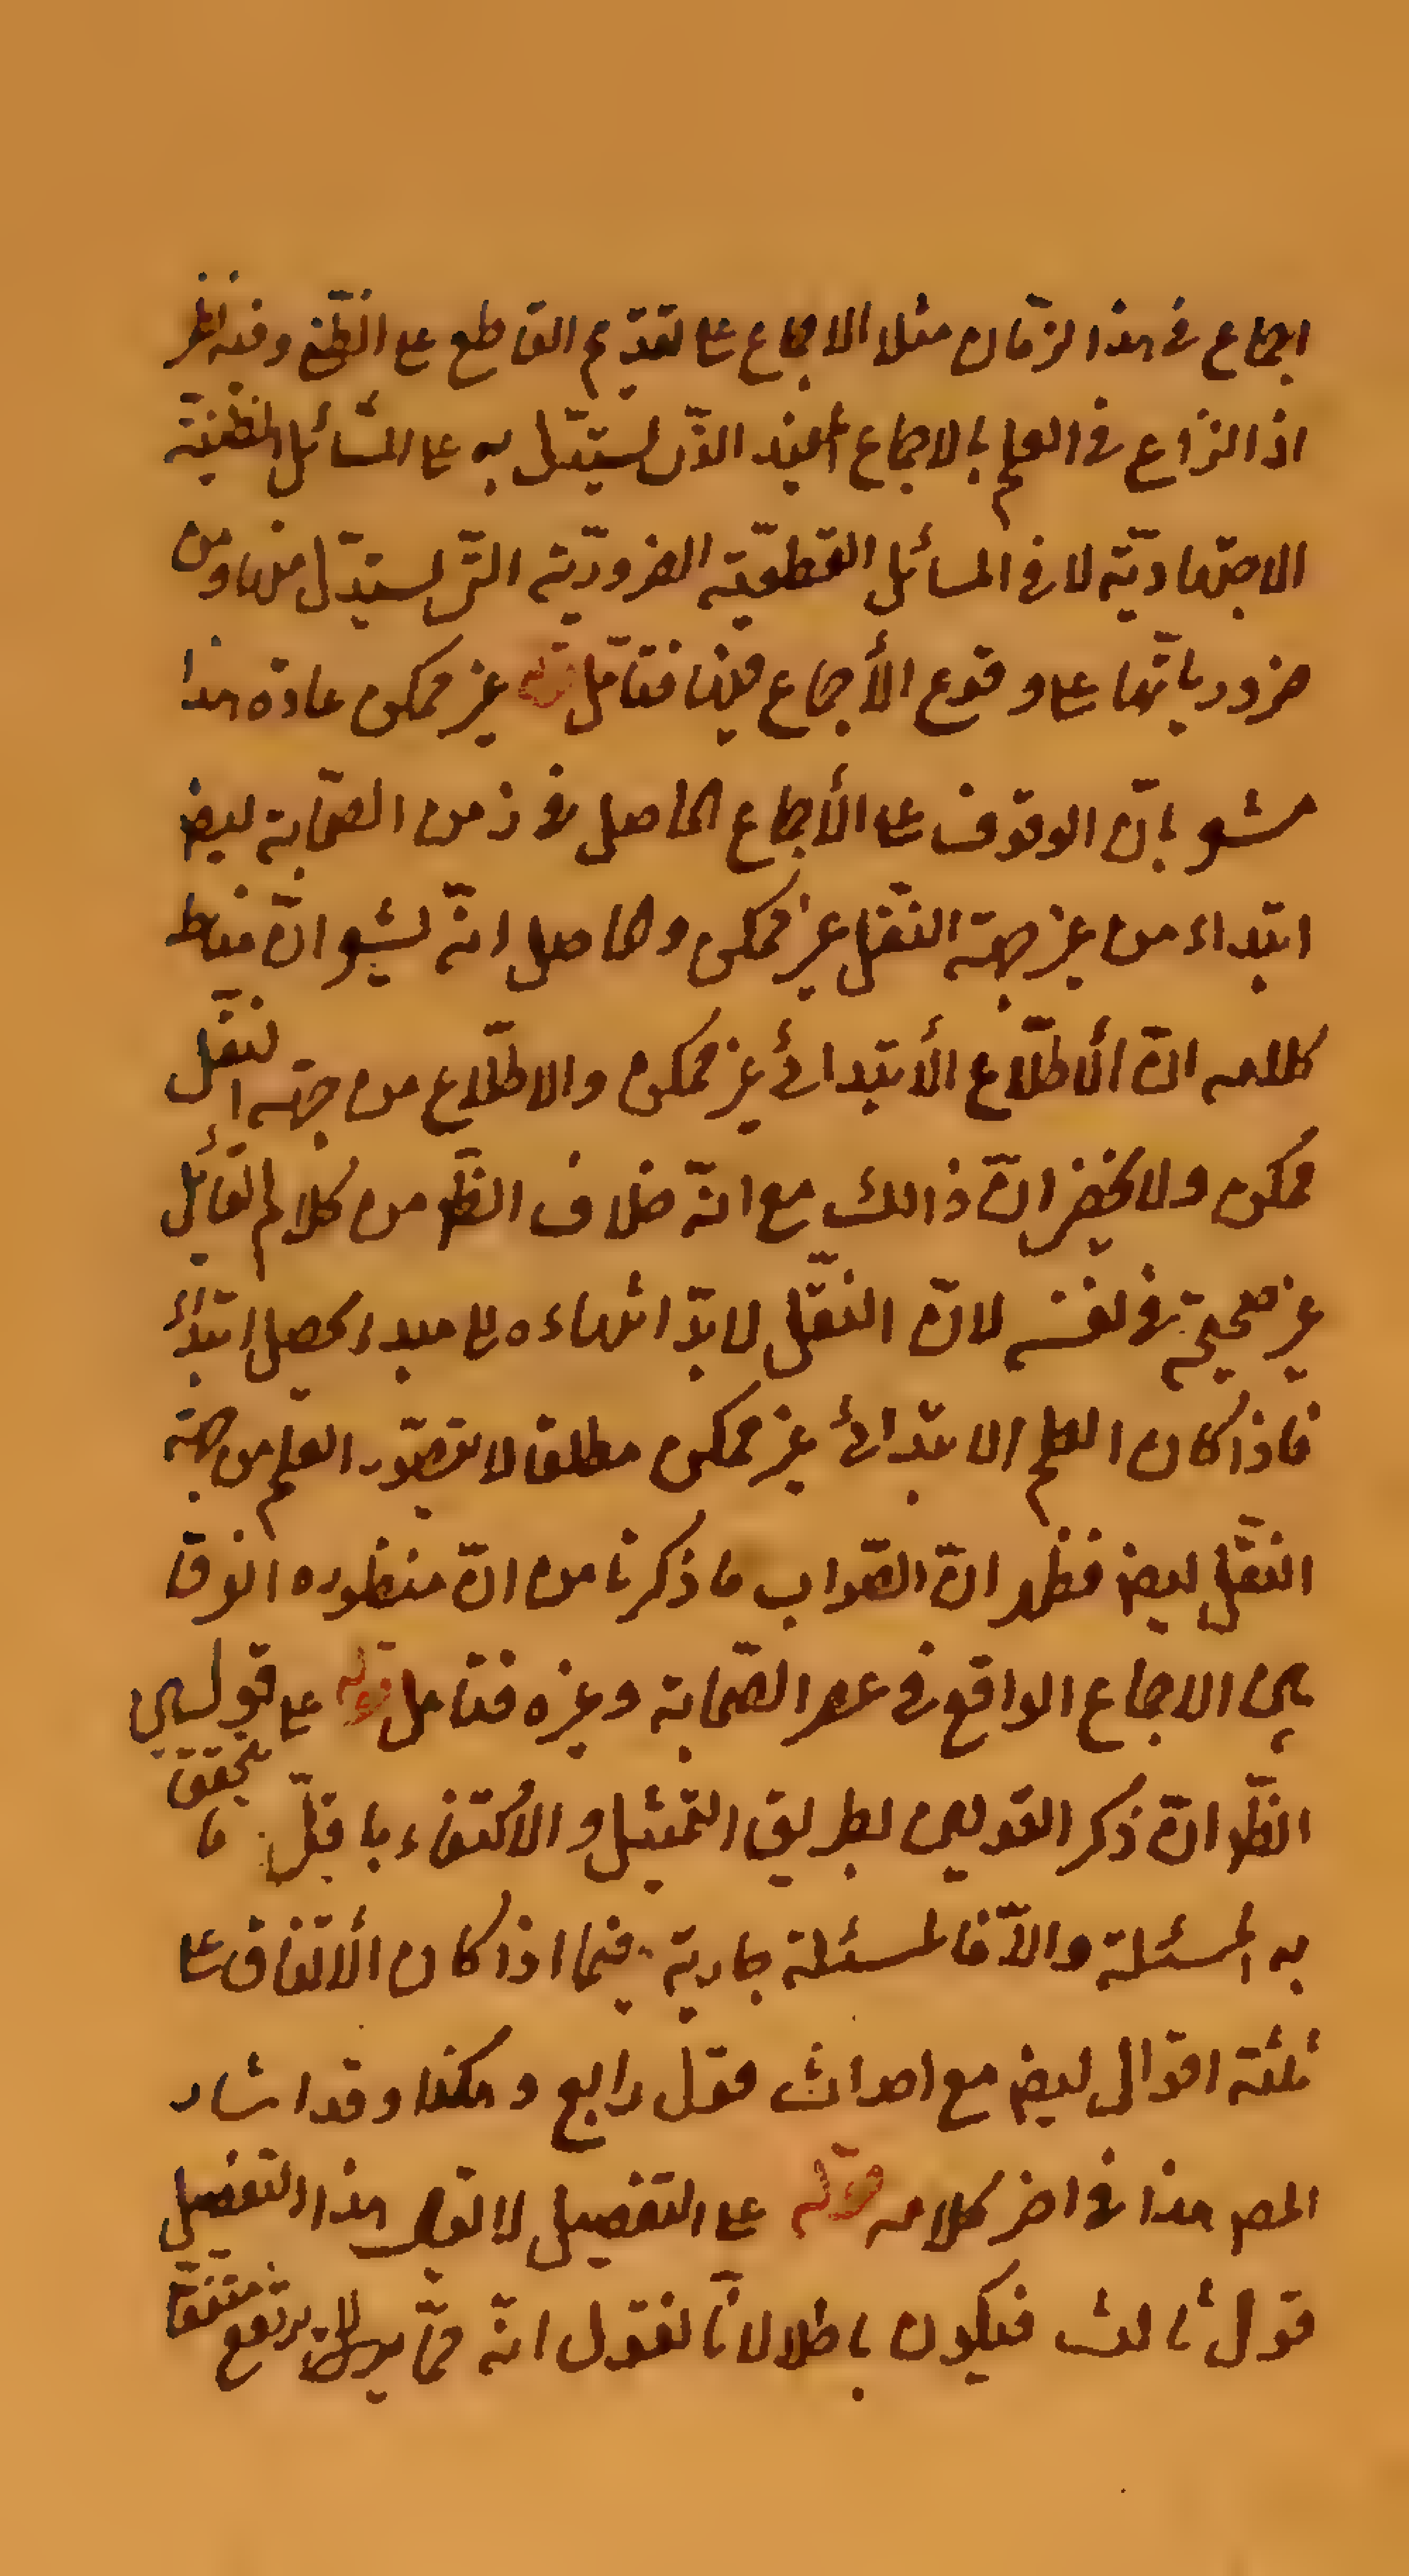 اجماع فى هذا الزمّان مثلا الاجماع على تقدّيم القاطع على الظّنى وفيه نظر
اذ النزاع فى العلم بالاجماع المفيد الذّى يستدّل به على المسّائل الظنيّة
الاجتهاديّة لا فى المسائل القطعيّة الضروريّة التّى يستدّل منها ومن
ضرورياتّها على وقوع الأجماع فيها فتامّل قوله غير ممكن عادة هذا
مشعر بانّ الوقوف على الأجماع الحاصل فى زمن الصّحابة ايض
ابتداء من غير جهة النقّل غير ممكن وحاصل انّه يشعر انّ مناط
كلامه انّ الأطلّاع الأبتدائى غير ممكن والاطلّاع من جهة النقّل
ممكن ولا يخفى انّ ذالك مع انّه خلاف الظّ من كلام القائل
غير صحيح فى نفسه لانّ النقّل لا بدّ انتهاءه الى مبدء يحصل ابتداءً
فاذا كان العلم الابتدائى غير ممكن مطلقا لا يتصّور العلم من جهة
النقّل ايض فظهر انّ الصّواب ما ذكرنا من انّ منظوره الفرق
بين الاجماع الواقع فى عصر الصّحابة وغيره فتامل قوله على قولين
الظّ انّ ذكر القولين بطريق التمّثيل والاكتفاء باقلّ ما يتحقق
به المسئلة والّا فالمسئلة جارية فيما اذا كان الأتّفاق على
ثلثة اقوال ايض مع احداث قول رابع وهكذا وقد اشار
المص هذا فى اخر كلامه قوله على التفّصيل لا يقال هذا التفصيل
قول ثالث فيكون باطلا لانّا نقول انّه ممّا لا يرتفع متفقا